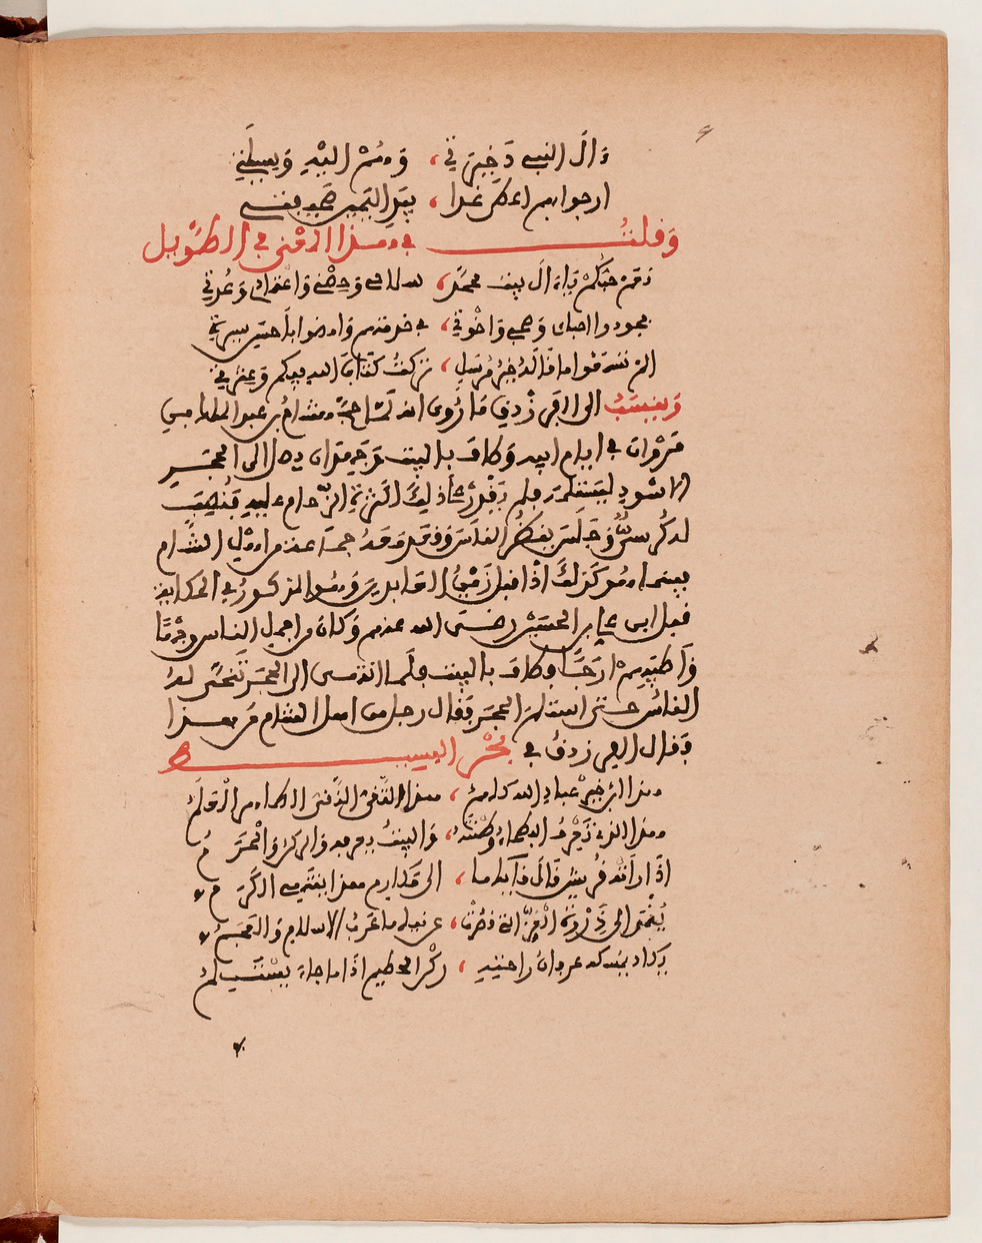 ءال النبي ذخيرتي ، وهم إليه وسيلتي
ارجوا بهم اعطى غدا ، بيد اليمين صحيفتي
وقلت في هذا المعنى في الطويل
محمد ، سلاحي وحصني واعتمادي وعدتي
وصحبي واخوتي ، في خدمتهم
خير مرسل ، تركت كتاب الله بينكم وعترتي
وينسب الى الفرزدق ما روي انه لما حج هشام بن عبد الملك بن
مروان في ايام ابيه وطاف بالبيت وجهد ان يصل الى الحجر
الاسود ليستلمه فلم يقدر على ذلك لكثرة الزحام عليه فنصب
له كرسي وجلس ينظر الناس وقعد معه جماعة من اهل الشام
بينما هو كذلك اذا قبل زين العابدين وهو المذكور في الحكاية
قبل ابن علي بن الحسين رضي الله عنهم وكان من اجمل الناس وجها
واطيبهم ارجا وطاف بالبيت فلما انتهى الى الحجر تنحى له
الناس حتى استلم الحجر فقال رجل من اهل الشام من هذا
فقال الفرزدق في بحر البسيط
هذا ابن خير عباد الله كلهم ، هذا التقي النقي الطاهر العلم
هذا الذي تعرف البطحاء وطئته ، والبيت يعرفه والركن والحرم
اذا راته قريش قال قائلها ، الى مكارم هذا ينتهي الكرم
ينمى الى ذروة العز التي قصرت ، عن نيلها عرب الاسلام والعجم
يكاد يمسكه عرفان راحته ، ركن الحطيم اذا ما جاء يستلم